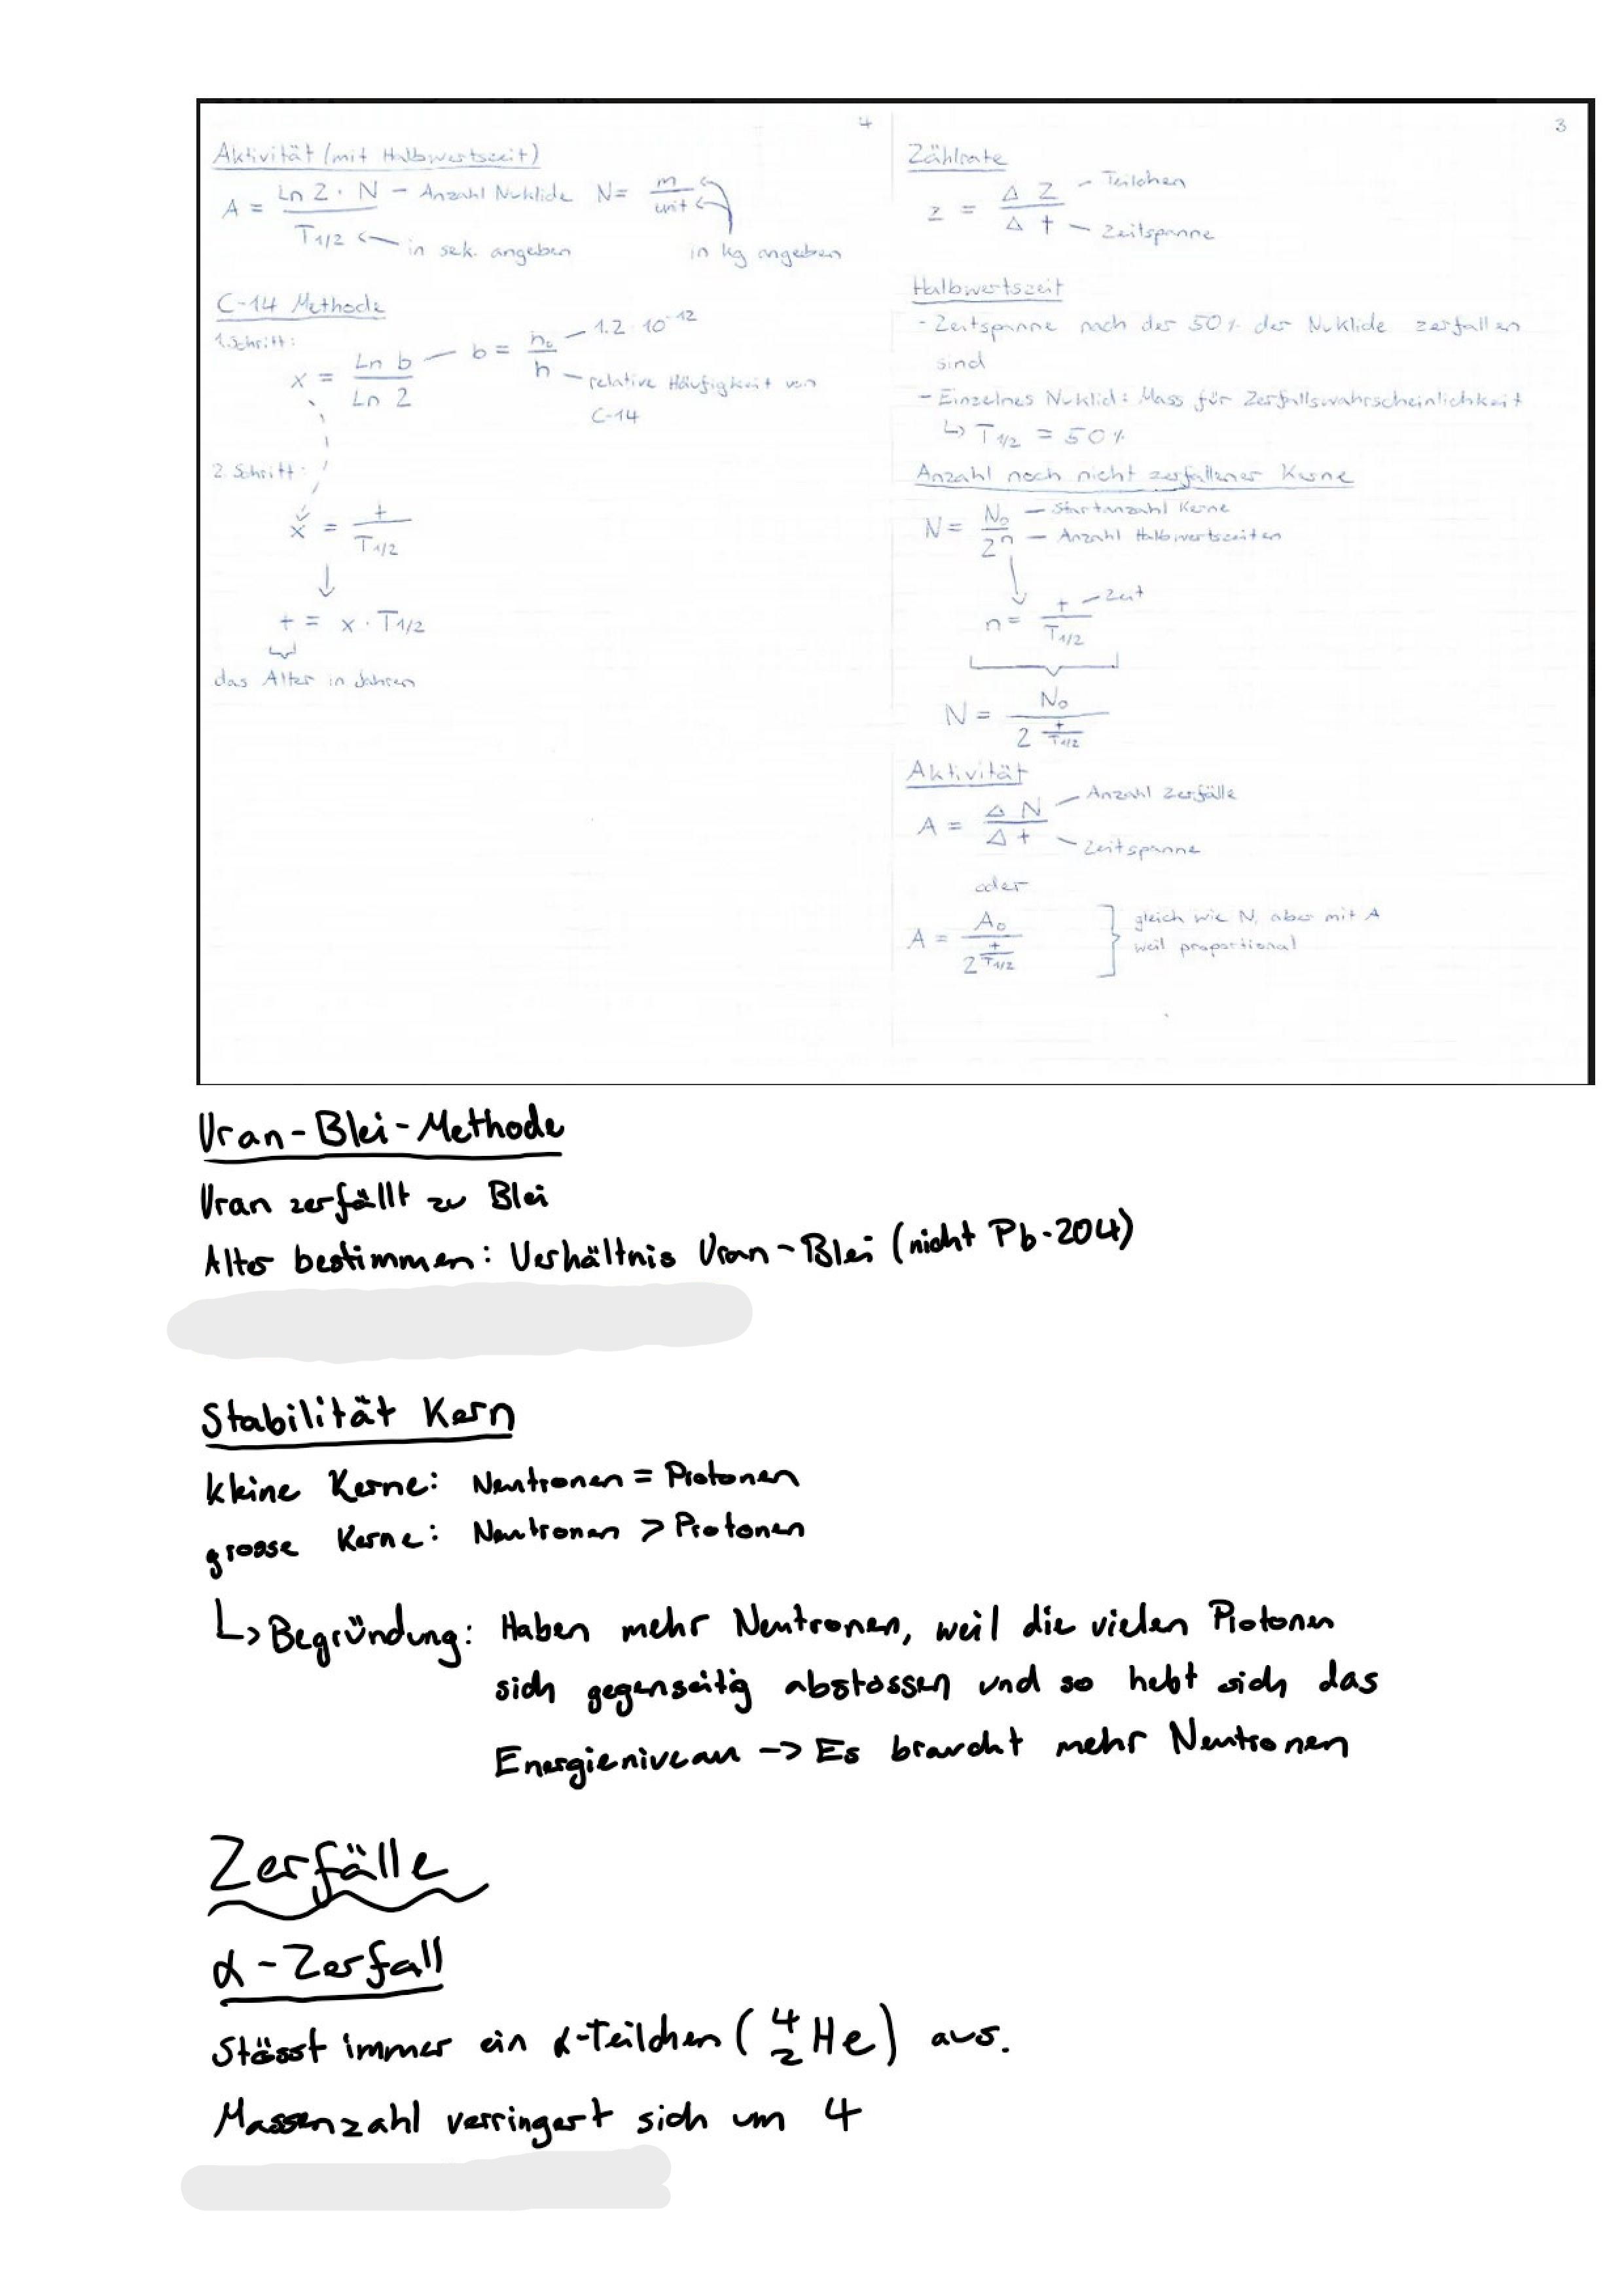 4
Aktivität (mit Halbwertszeit)
A = Ln 2 · N / T1/2 — Anzahl Nuklide N = m / unit
in sek. angeben
in kg angeben
C-14 Methode
1. Schritt:
x = Ln b / Ln 2 — b = h0 / h — 1.2 · 10^-12
relative Häufigkeit von
C-14
2. Schritt:
x = t / T1/2
↓
t = x · T1/2
das Alter in Jahren
3
Zählrate
z = Δ Z / Δ t
Teilchen
Zeitspanne
Halbwertszeit
- Zeitspanne nach der 50% der Nuklide zerfallen
sind
- Einzelnes Nuklid: Mass für Zerfallswahrscheinlichkeit
↳ T1/2 = 50%
Anzahl noch nicht zerfallener Kerne
N = N0 / 2^n
Startanzahl Kerne
Anzahl Halbwertszeiten
n = t / T1/2 — Zeit
N = N0 / 2^(t / T1/2)
Aktivität
A = Δ N / Δ t
Anzahl Zerfälle
Zeitspanne
oder
A = A0 / 2^(t / T1/2)
gleich wie N, aber mit A
weil proportional
Uran-Blei-Methode
Uran zerfällt zu Blei
Alter bestimmen: Verhältnis Uran-Blei (nicht Pb-204)
Stabilität Kern
kleine Kerne: Neutronen = Protonen
grosse Kerne: Neutronen > Protonen
↳ Begründung: Haben mehr Neutronen, weil die vielen Protonen
sich gegenseitig abstossen und so hebt sich das
Energieniveau -> Es braucht mehr Neutronen
Zerfälle
α-Zerfall
Stösst immer ein α-Teilchen (4 2 He) aus.
Massenzahl verringert sich um 4